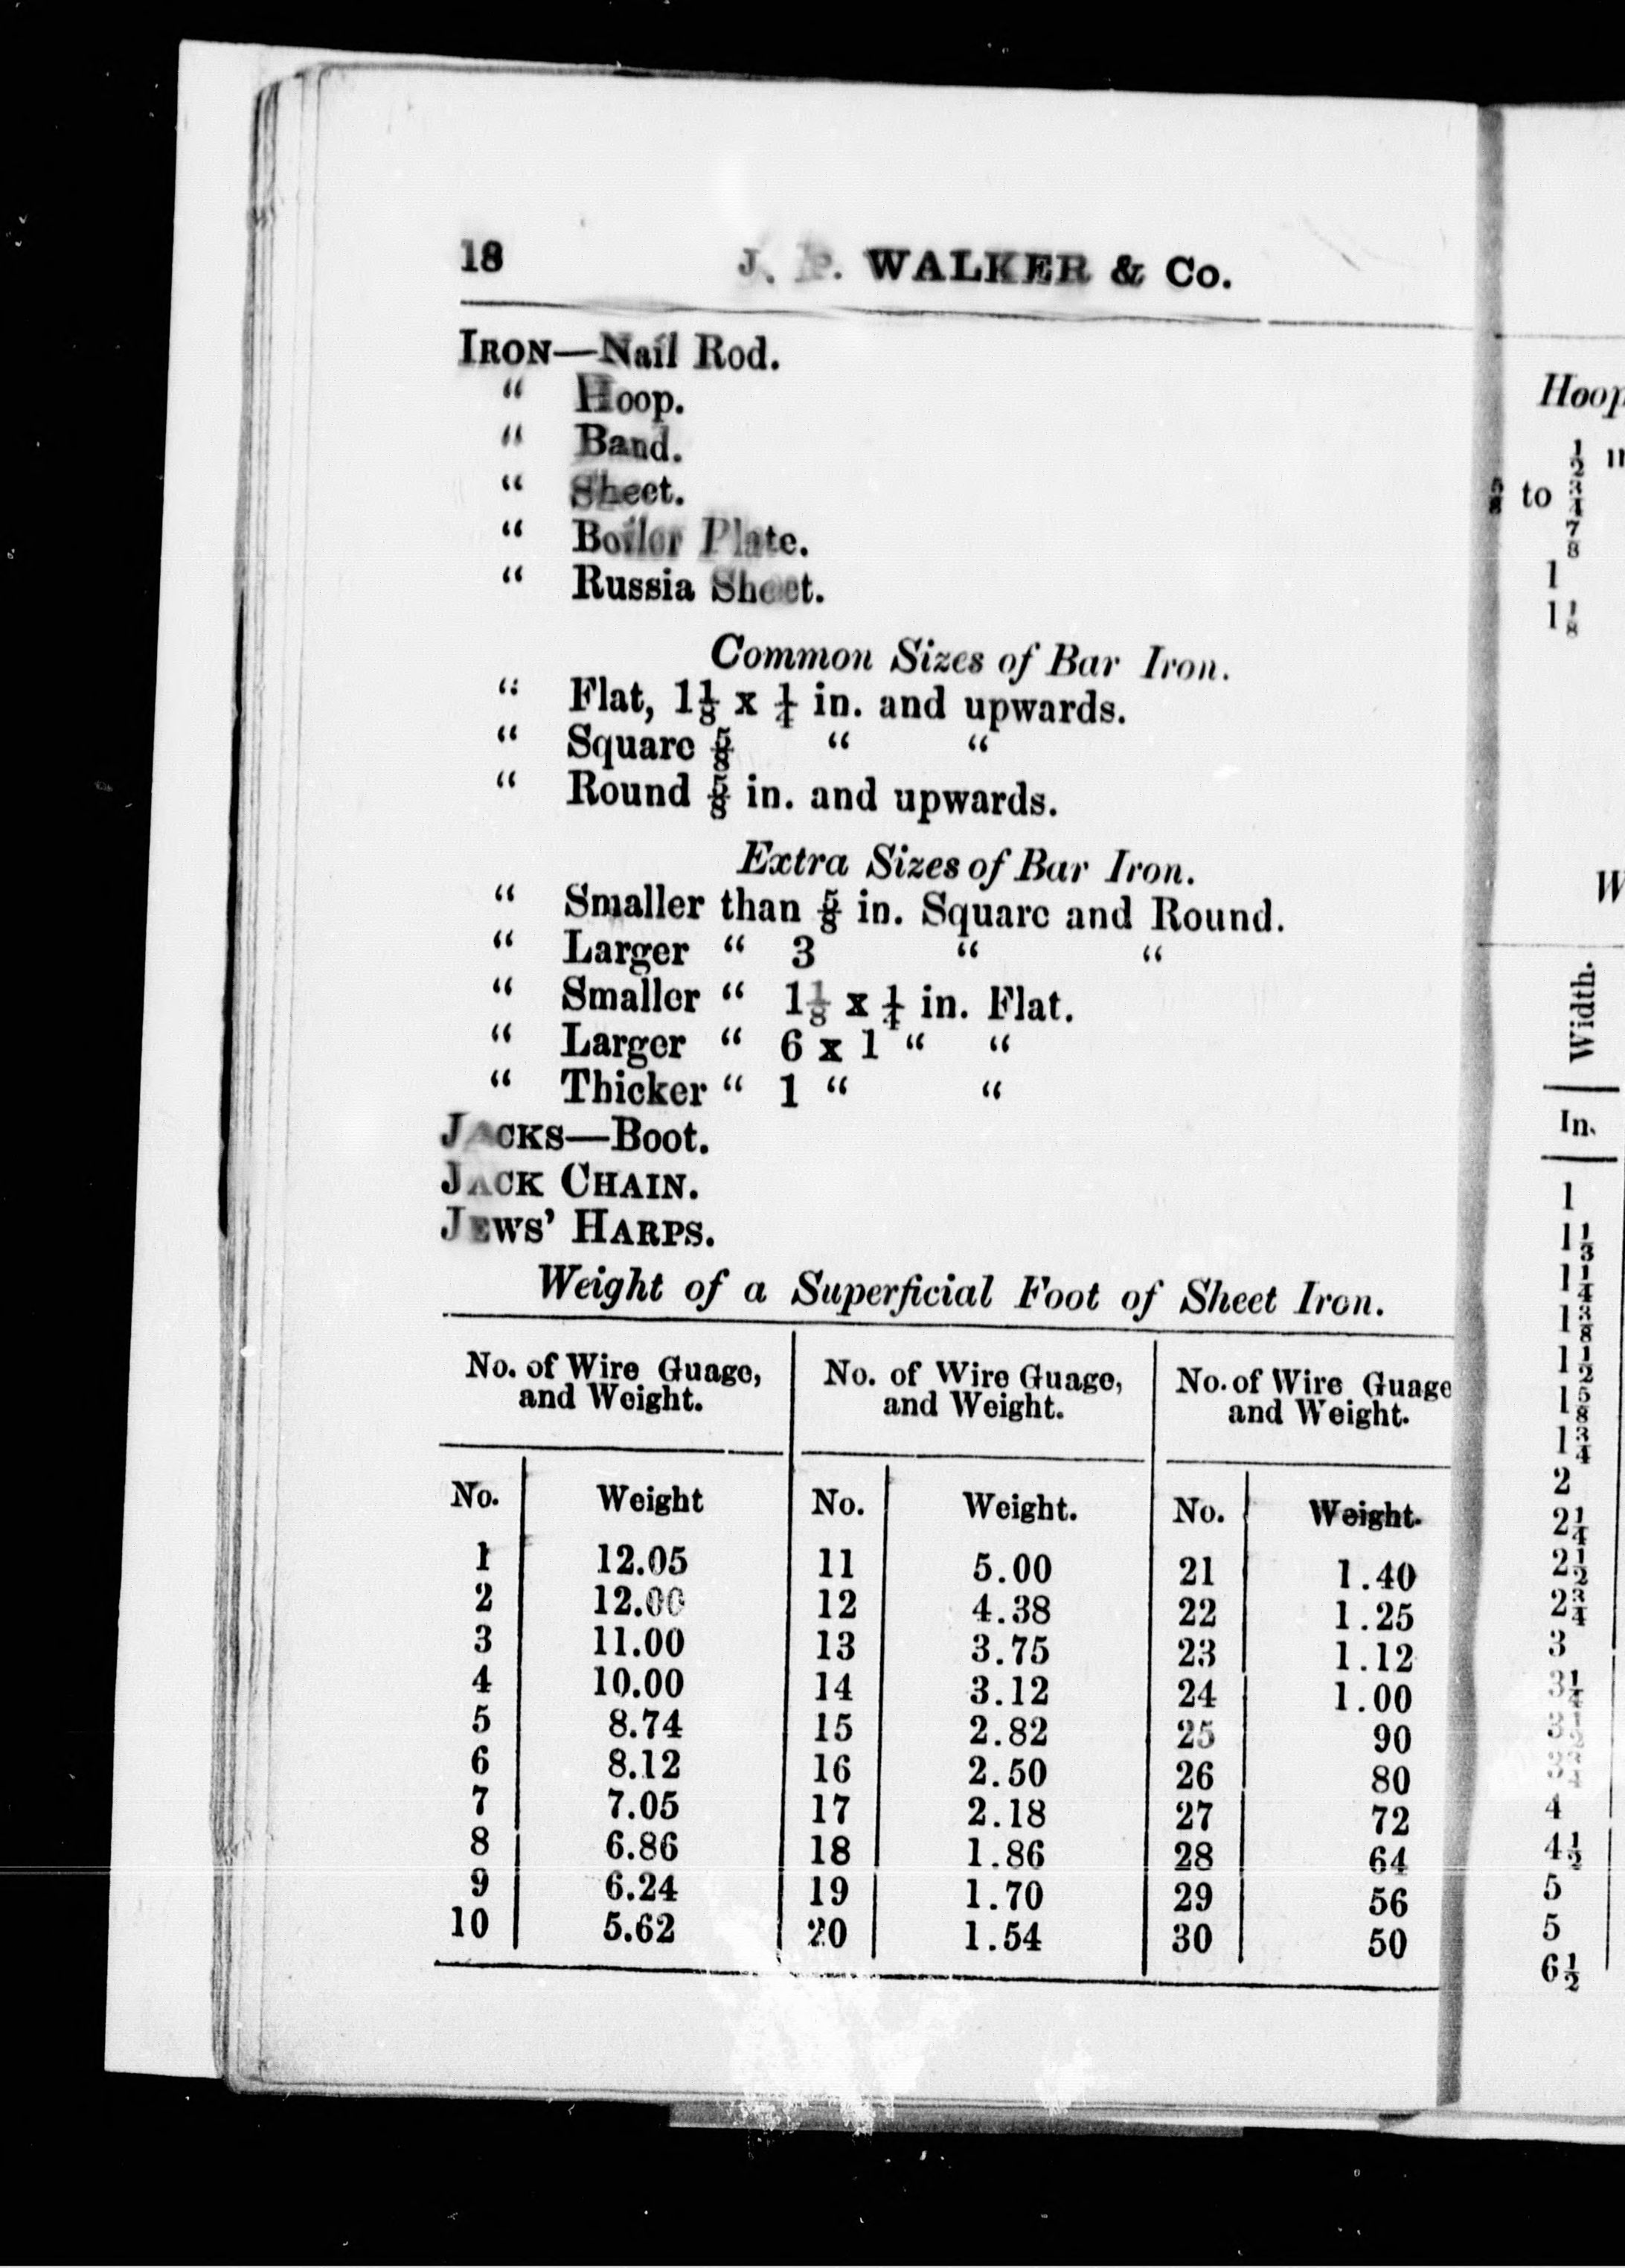 18 J. P. WALKER & Co.
IRON—Nail Rod.
“ Hoop.
“ Band.
“ Sheet.
“ Boiler Plate.
“ Russia Sheet.
Common Sizes of Bar Iron.
“ Flat, 1⅛ x ¼ in. and upwards.
“ Square ⅝ “ “
“ Round ⅝ in. and upwards.
Extra Sizes of Bar Iron.
“ Smaller than ⅝ in. Square and Round.
“ Larger “ 3 “ “
“ Smaller “ 1⅛ x ¼ in. Flat.
“ Larger “ 6 x 1 “ “
“ Thicker “ 1 “ “
JACKS—Boot.
JACK CHAIN.
JEWS’ HARPS.
Weight of a Superficial Foot of Sheet Iron.
No. of Wire Guage, No. of Wire Guage, No. of Wire Guage
and Weight. and Weight. and Weight.
No. Weight No. Weight. No. Weight.
1 12.05 11 5.00 21 1.40
2 12.00 12 4.38 22 1.25
3 11.00 13 3.75 23 1.12
4 10.00 14 3.12 24 1.00
5 8.74 15 2.82 25 90
6 8.12 16 2.50 26 80
7 7.05 17 2.18 27 72
8 6.86 18 1.86 28 64
9 6.24 19 1.70 29 56
10 5.62 20 1.54 30 50
Hoop
½
⅝ to ¾
⅞
1
1⅛
W
Width.
In.
1
1⅓
1¼
1⅜
1½
1⅝
1¾
2
2¼
2½
2¾
3
3¼
3½
3¾
4
4½
5
5
6½